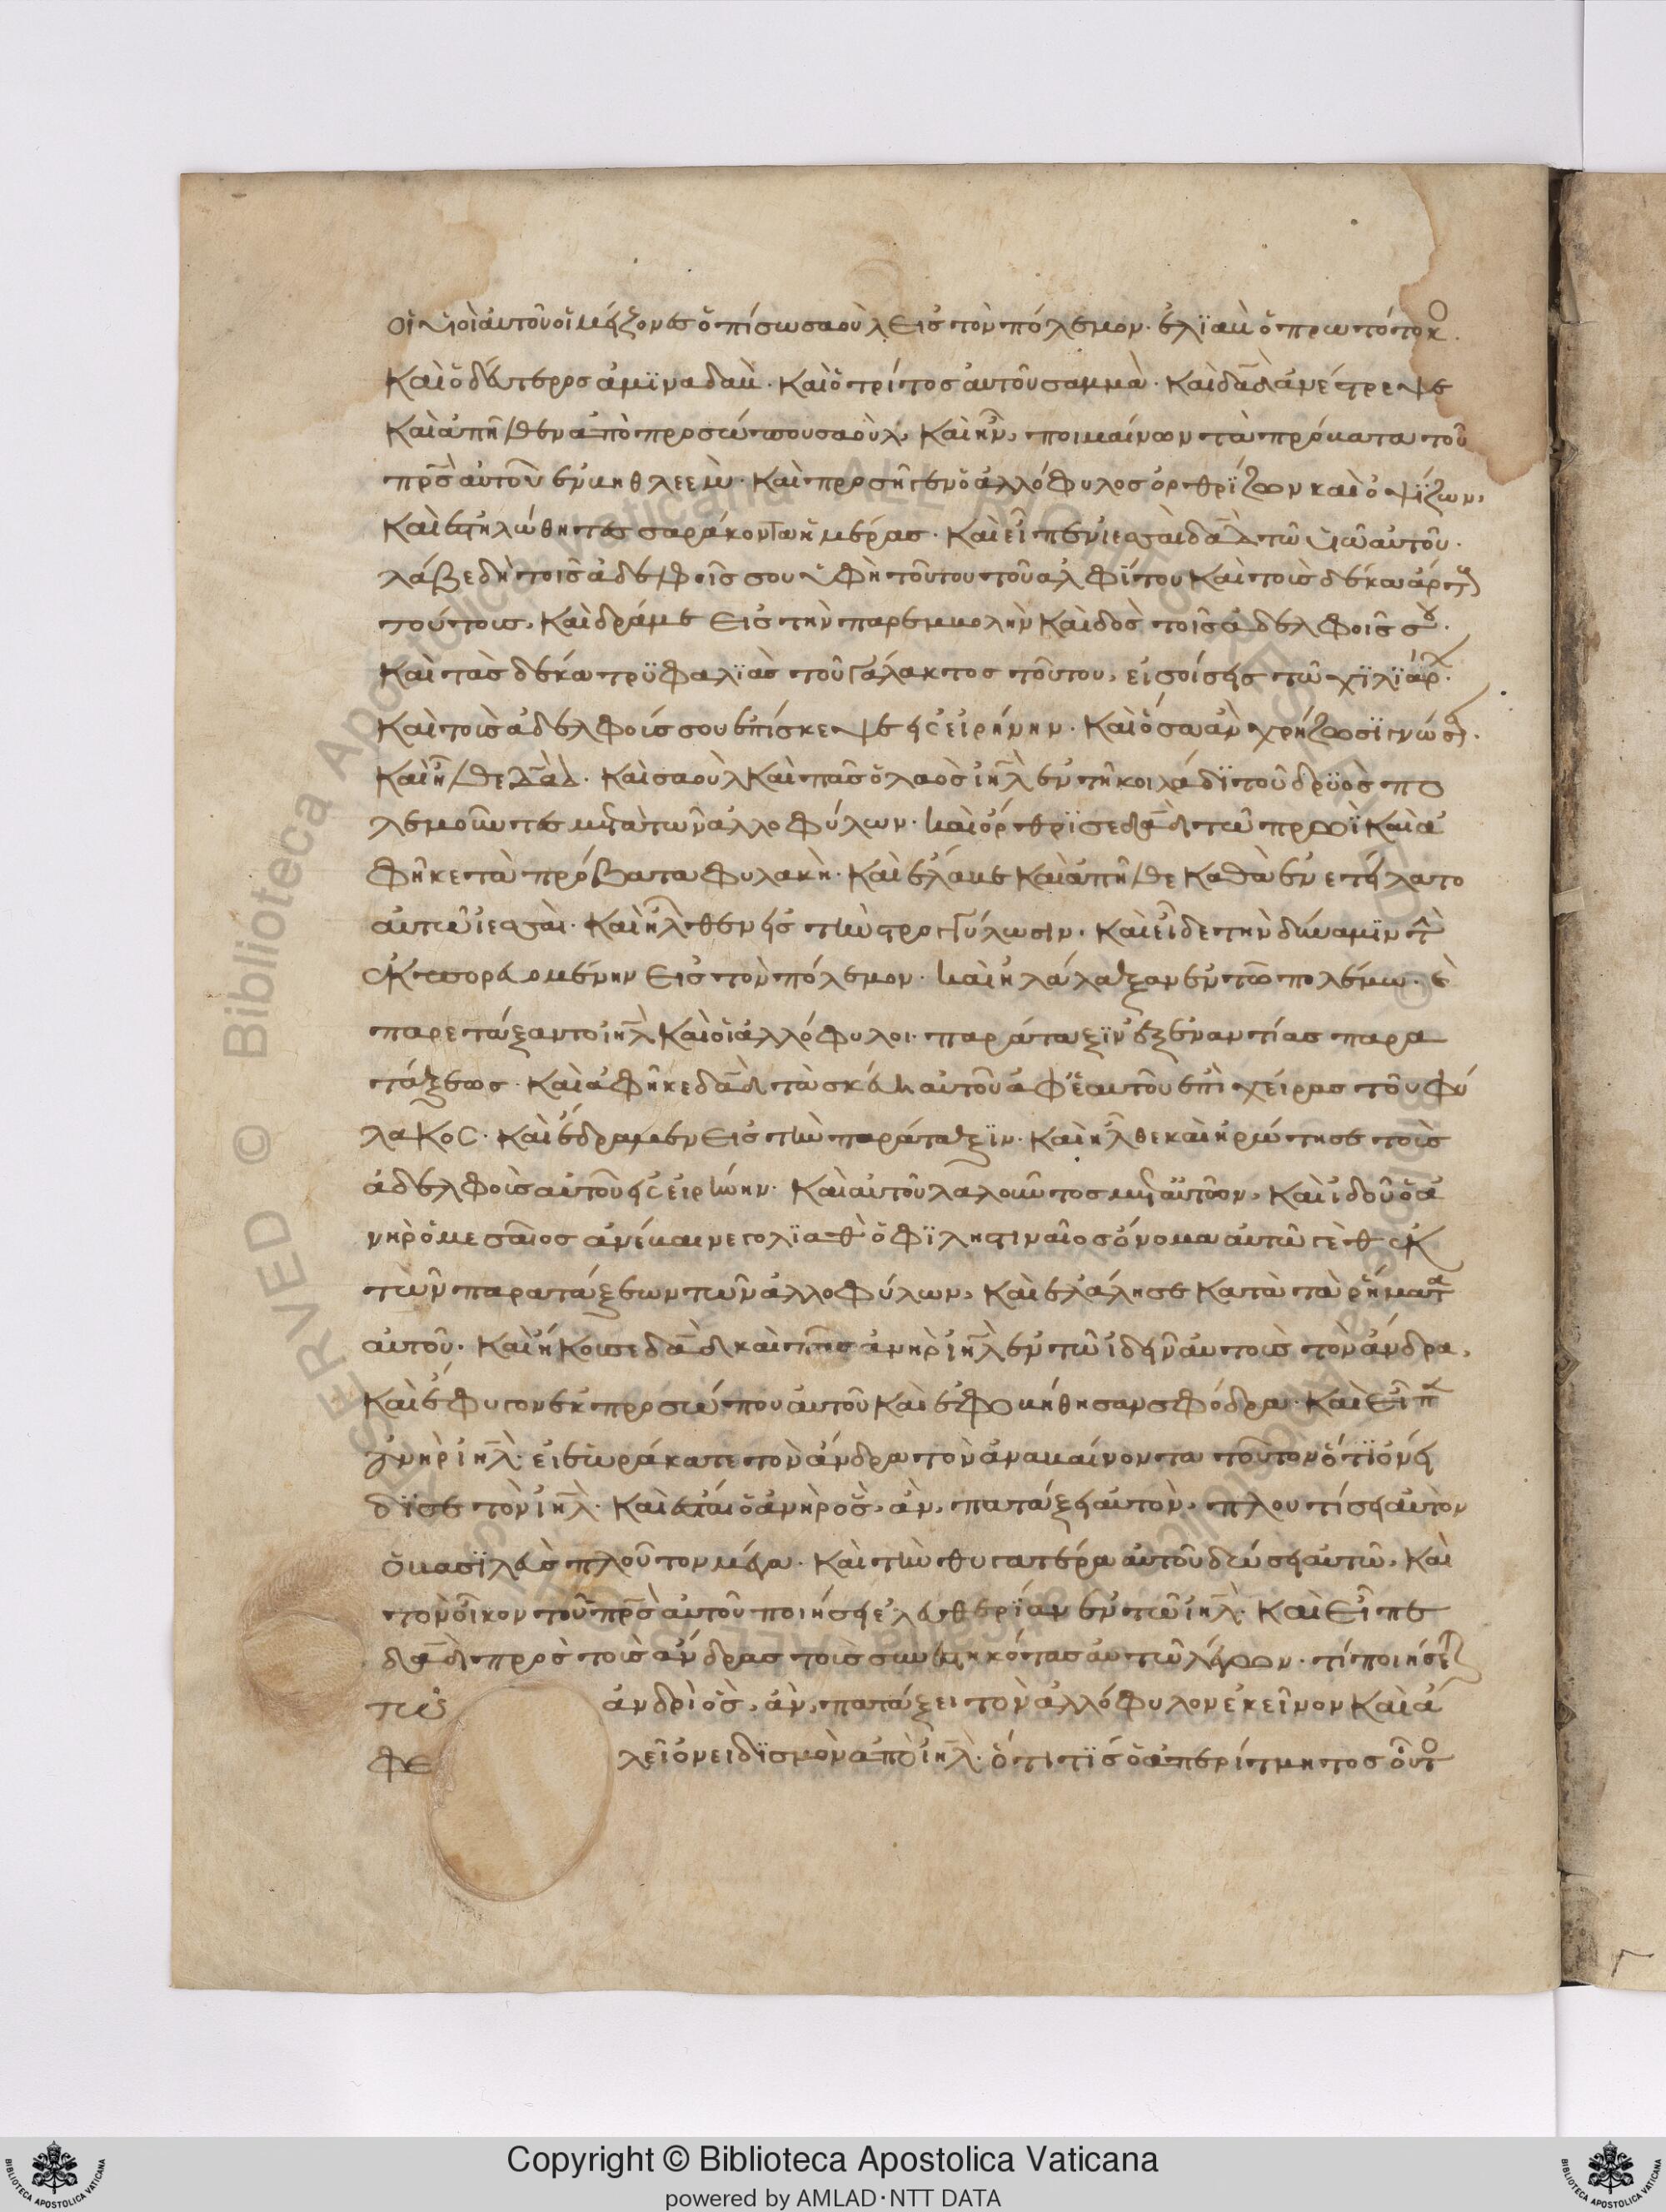 οἱ υἱοὶ αὐτοῦ οἱ μείζονες ὀπίσω σαοὺλ εἰς τὸν πόλεμον. ἐλϊὰβ ὁ πρωτότοκο.
Καὶ ὁ δεύτερος ἀμϊναδὰβ. Καὶ ὁ τρίτος αὐτοῦ σαμμὰ. Καὶ δαδ ἀνέστρεψε
Καὶ ἀπῆλθεν ἀπὸ προσώπου σαοὺλ, Καὶ ἦν, ποιμαίνων τὰ πρόβατα τοῦ
πρς αὐτοῦ ἐν βηθλεεμ. Καὶ προσῆγεν ὁ ἀλλόφυλος ὀρθρίζων καὶ ὀψίζων,
Καὶ ἐστηλώθη τεσσαράκοντα ἡμέρας. Καὶ εἶπεν ἰεσσαὶ δαδ τῶ υἱῶ αὐτοῦ.
λάβε δὴ τοῖς ἀδελφοῖς σου ὐφὴ τούτου τοῦ ἀλφίτου Καὶ τοὺς δέκα ἄρτους
τούτους, Καὶ δράμε εἰς τὴν παρεμβολὴν Καὶ δὸς τοῖς ἀδελφοῖς σου.
Καὶ τὰς δέκα τρϋφαλϊὰς τοῦ γάλακτος τούτου, εἰσοίσεις τῶ χϊλϊάρχ.
Καὶ τοὺς ἀδελφούς σου ἐπίσκεψε εἰς εἰρήνην. Καὶ ὅσα ἂν χρήζωσϊ γνώση.
Καὶ ἦλθε δαδ. Καὶ σαοὺλ Καὶ πᾶς ὁ λαὸς ἰηλ ἐν τῆ κοιλάδϊ τοῦ δρϋὸς πο
λεμοῦντες μετὰ τῶν ἀλλοφύλων. Καὶ ὄρθρϊσε δαδ τῶ πρωῒ Καὶ ἀ
φῆκε τὰ πρόβατα φυλακῆ. Καὶ ἔλαβε Καὶ ἀπῆλθε Καθὰ ἐνετείλατο
αὐτῶ ἰεσσαὶ. Καὶ ἦλθεν εἰς τὴν στρογγύλωσιν. Καὶ εἶδε τὴν δύναμϊν τὴν
ἐκπορευομένην εἰς τὸν πόλεμον. Καὶ ἠλάλαξαν ἐν τῶ πολέμω. καὶ
παρετάξαντο ἰηλ Καὶ οἱ ἀλλόφυλοι παράταξϊν ἐξεναντίας παρα
τάξεως. Καὶ ἀφῆκε δαδ τὰ σκεύη αὐτοῦ ἀφ' ἑαυτοῦ ἐπὶ χεῖρας τοῦ φύ
λακος. Καὶ ἔδραμεν εἰς τὴν παράταξϊν. Καὶ ἦλθε καὶ ἠρώτησε τοὺς
ἀδελφοὺς αὐτοῦ εἰς εἰρήνην. Καὶ αὐτοῦ λαλοῦντος μετ' αὐτῶν, Καὶ ἰδοῦ ὁ ἀ
νὴρ ὁ μεσαῖος ἀνέβαινε γολϊαθ ὁ φϊληστιναῖος ὄνομα αὐτῶ γὲθ ἐκ
τῶν παρατάξεων τῶν ἀλλοφύλων, Καὶ ἐλάλησε Κατὰ τὰ ῥήματα
αὐτοῦ. Καὶ ἤκουσε δαδ καὶ πᾶς ἀνὴρ ἰηλ ἐν τῶ ἰδεῖν αὐτοὺς τὸν ἄνδρα,
Καὶ ἔφυγον ἐκ προσώπου αὐτοῦ Καὶ ἐφοβήθησαν σφόδρα. Καὶ εἶπεν
ἀνὴρ ἰηλ. εἰ ἑωράκατε τὸν ἄνδρα τὸν ἀναβαίνοντα τοῦτον ὅτϊ ὀνεί
δϊσε τὸν ἰηλ. Καὶ ἔσται ὁ ἀνὴρ ὃς, ἂν, πατάξει αὐτὸν, πλουτίσει αὐτὸν
ὁ βασϊλεὺς πλοῦτον μέγα. Καὶ τὴν θυγατέρα αὐτοῦ δώσει αὐτῶ, Καὶ
τὸν οἶκον τοῦ πρς αὐτοῦ ποιήσει ἐλευθερίαν ἐν τῶ ἰηλ. Καὶ εἶπε
δαδ πρὸς τοὺς ἄνδρας τοὺς συνεστηκότας αὐτῶ λέγων. τί ποιήσετε
τῶ ἀνδρὶ ὃς, ἂν, πατάξει τὸν ἀλλόφυλον ἐκεῖνον Καὶ ἀ
φε λεῖ ὀνειδϊσμὸν ἀπὸ ἰηλ. ὅτι τϊς ὁ ἀπερίτμητος οὗτο
Copyright © Biblioteca Apostolica Vaticana
powered by AMLAD·NTT DATA